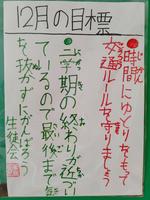 12月の目標
時間にゆとりをもって
交通ルールを守りましょう
二学期の終わりが近づい
てーるので最後まで気
を抜かずにがんばろう
生徒会